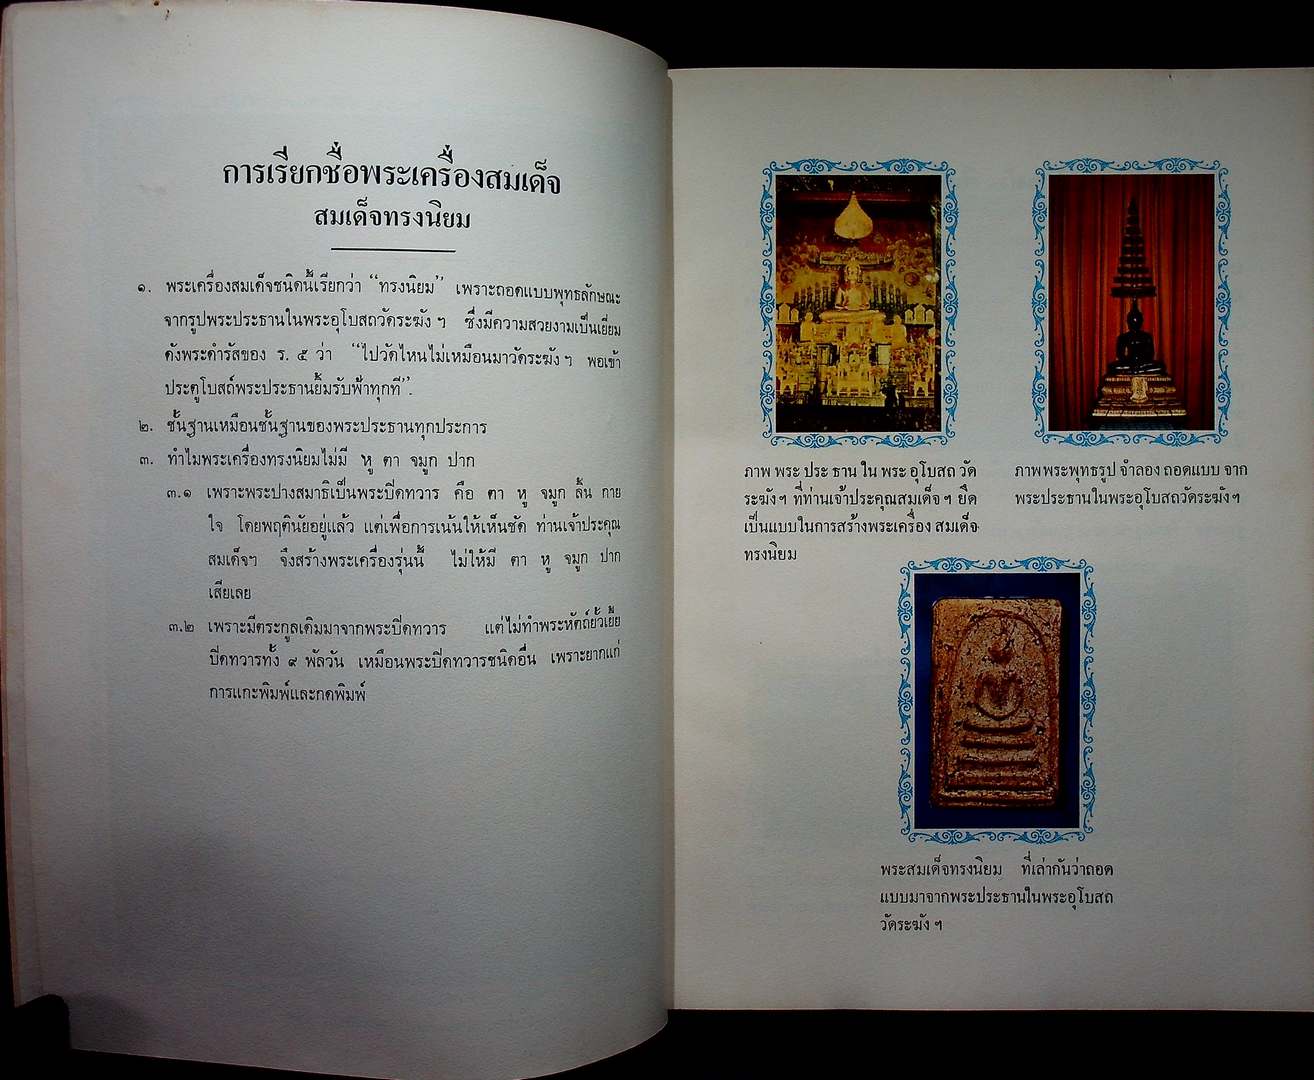 การเรียกชื่อพระเครื่องสมเด็จ
สมเด็จทรงนิยม
๑. พระเครื่องสมเด็จชนิดนี้เรียกว่า “ทรงนิยม” เพราะถอดแบบพุทธลักษณะ
จากรูปพระประธานในพระอุโบสถวัดระฆัง ฯ ซึ่งมีความสวยงามเป็นเยี่ยม
ดังพระดำรัสของ ร. ๕ ว่า “ไปวัดไหนไม่เหมือนมาวัดระฆัง ฯ พอเข้า
ประตูโบสถ์พระประธานยิ้มรับฟ้าทุกที”.
๒. ชั้นฐานเหมือนชั้นฐานของพระประธานทุกประการ
๓. ทำไมพระเครื่องทรงนิยมไม่มี หู ตา จมูก ปาก
๓.๑ เพราะพระปางสมาธิเป็นพระปิดทวาร คือ ตา หู จมูก ลิ้น กาย
ใจ โดยพฤตินัยอยู่แล้ว แต่เพื่อการเน้นให้เห็นชัด ท่านเจ้าประคุณ
สมเด็จฯ จึงสร้างพระเครื่องรุ่นนี้ ไม่ให้มี ตา หู จมูก ปาก
เสียเลย
๓.๒ เพราะมีตระกูลเดิมมาจากพระปิดทวาร แต่ไม่ทำพระหัตถ์ยั้วเยี้ย
ปิดทวารทั้ง ๙ พัลวัน เหมือนพระปิดทวารชนิดอื่น เพราะยากแก่
การแกะพิมพ์และกดพิมพ์
ภาพ พระ ประ ธาน ใน พระ อุโบสถ วัด
ระฆังฯ ที่ท่านเจ้าประคุณสมเด็จ ฯ ยึด
เป็นแบบในการสร้างพระเครื่อง สมเด็จ
ทรงนิยม
ภาพพระพุทธรูป จำลอง ถอดแบบ จาก
พระประธานในพระอุโบสถวัดระฆังฯ
พระสมเด็จทรงนิยม ที่เล่ากันว่าถอด
แบบมาจากพระประธานในพระอุโบสถ
วัดระฆัง ฯ